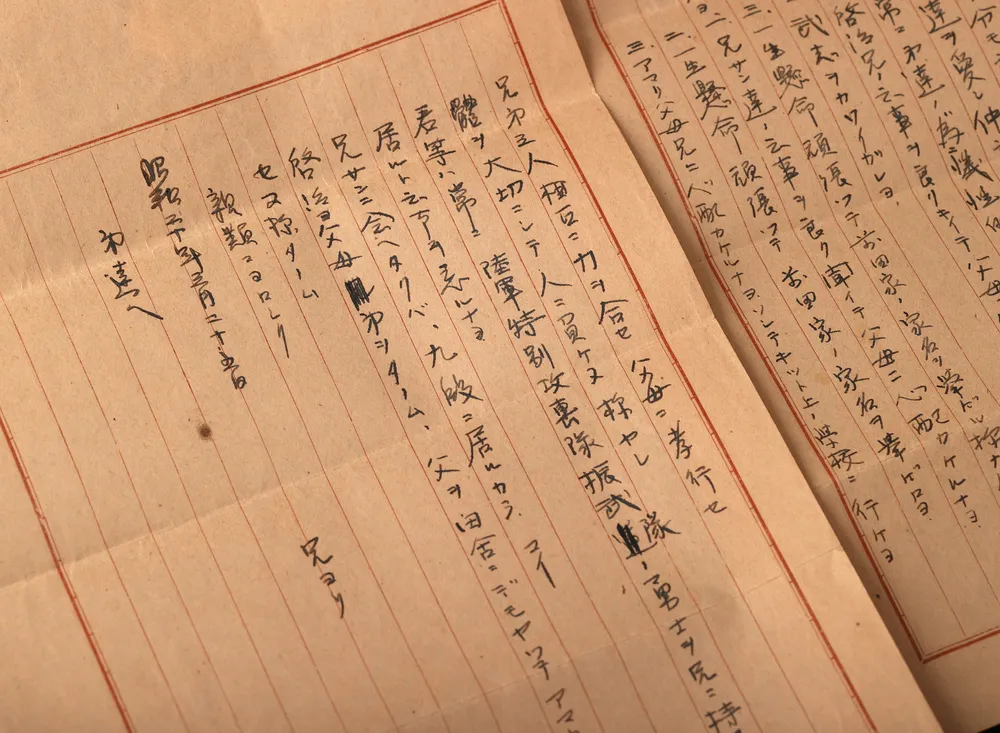 達ヲ愛シ仲
常ニ弟達ノ為犠牲
啓治兄ノ云事ヲ良クキイテ父母
武志ヲカワイガレヨ、
三、一生懸命頑張ツテ前田家ノ家名ヲ挙ゲル様
一兄サン達ノ云事ヲ良ク聞イテ父母ニ心配カケルナヨ、
二、一生懸命頑張ツテ前田家ノ家名ヲ挙ゲロヨ
三、アマリ父母兄ニ心配カケルナヨ、ソシテキット上ノ学校ニ行ケヨ
兄弟三人相互ニ力ヲ合セ父母ニ孝行セ
體ヲ大切ニシテ人ニ負ケヌ様ヤレ
君等ハ常ニ陸軍特別攻撃隊振武隊ノ勇士ヲ兄ニ持
居ルト云事ヲ忘ルナヨ
兄サンニ会ヘタクバ、九段ニ居ルカラコイ
啓治ヨ父母弟ヲタノム、父ヲ田舎ニデモヤツテアマ
セヌ様タノム
親類ニヨロシク
昭和二十年三月二十五日
兄ヨリ
弟達ヘ